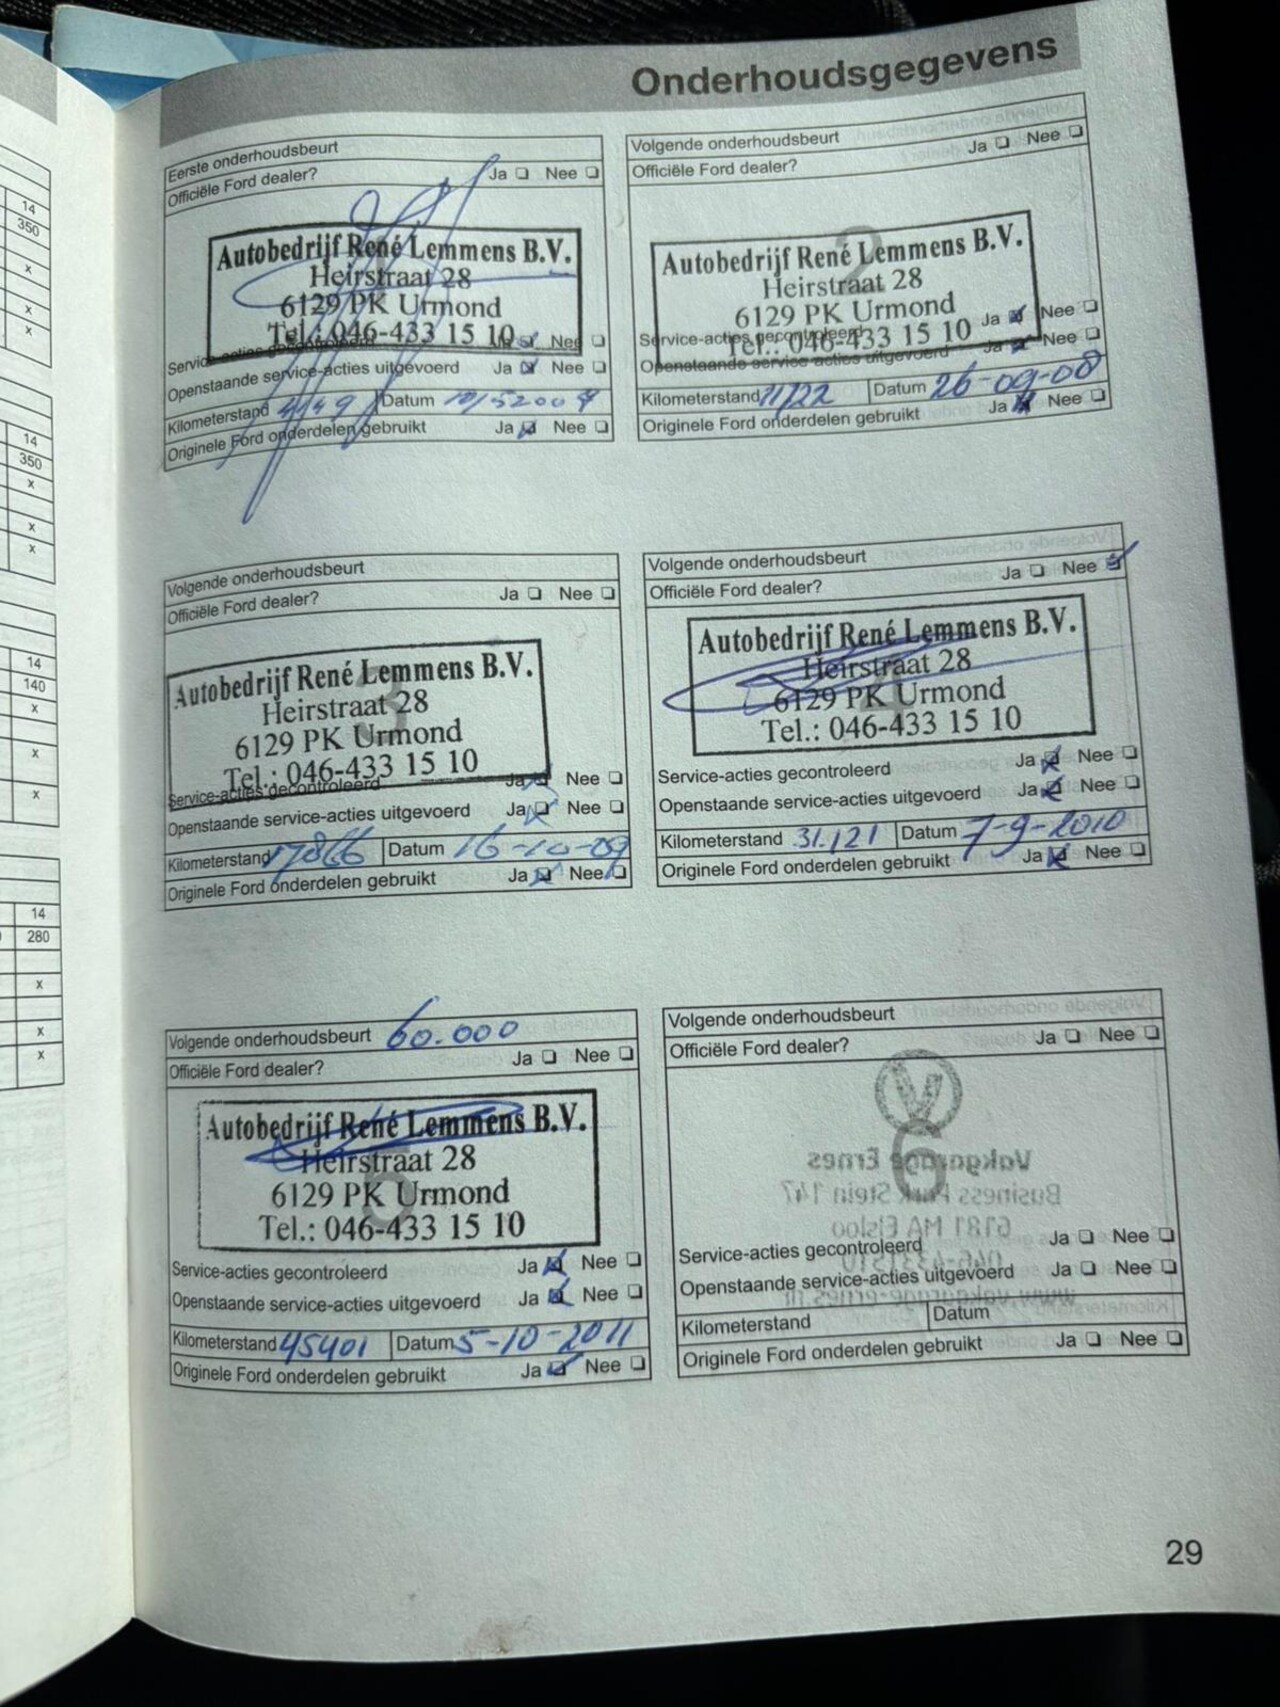 Onderhoudsgegevens
Eerste onderhoudsbeurt
Officiële Ford dealer? Ja Nee
Autobedrijf René Lemmens B.V.
Heirstraat 28
6129 PK Urmond
Tel.: 046-433 15 10
Service-acties gecontroleerd Nee
Openstaande service-acties uitgevoerd Ja Nee
Kilometerstand Datum
Originele Ford onderdelen gebruikt Ja Nee
Volgende onderhoudsbeurt
Officiële Ford dealer? Ja Nee
2
Autobedrijf René Lemmens B.V.
Heirstraat 28
6129 PK Urmond
Tel.: 046-433 15 10
Service-acties gecontroleerd Ja Nee
Openstaande service-acties uitgevoerd Ja Nee
Kilometerstand 11122 Datum 26-09-08
Originele Ford onderdelen gebruikt Ja Nee
Volgende onderhoudsbeurt
Officiële Ford dealer? Ja Nee
3
Autobedrijf René Lemmens B.V.
Heirstraat 28
6129 PK Urmond
Tel.: 046-433 15 10
Service-acties gecontroleerd Ja Nee
Openstaande service-acties uitgevoerd Ja Nee
Kilometerstand 17866 Datum 16-10-09
Originele Ford onderdelen gebruikt Ja Nee
Volgende onderhoudsbeurt
Officiële Ford dealer? Ja Nee
4
Autobedrijf René Lemmens B.V.
Heirstraat 28
6129 PK Urmond
Tel.: 046-433 15 10
Service-acties gecontroleerd Ja Nee
Openstaande service-acties uitgevoerd Ja Nee
Kilometerstand 31.121 Datum 7-9-2010
Originele Ford onderdelen gebruikt Ja Nee
Volgende onderhoudsbeurt 60.000
Officiële Ford dealer? Ja Nee
5
Autobedrijf René Lemmens B.V.
Heirstraat 28
6129 PK Urmond
Tel.: 046-433 15 10
Service-acties gecontroleerd Ja Nee
Openstaande service-acties uitgevoerd Ja Nee
Kilometerstand 45401 Datum 5-10-2011
Originele Ford onderdelen gebruikt Ja Nee
Volgende onderhoudsbeurt
Officiële Ford dealer? Ja Nee
6
Service-acties gecontroleerd Ja Nee
Openstaande service-acties uitgevoerd Ja Nee
Kilometerstand Datum
Originele Ford onderdelen gebruikt Ja Nee
29
14
350
x
x
x
14
350
x
x
x
14
140
x
x
x
14
280
x
x
x